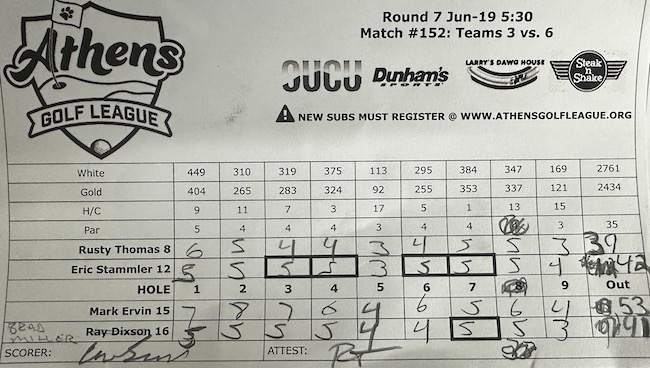 Round 7 Jun-19 5:30
Match #152: Teams 3 vs. 6
Athens
GOLF LEAGUE
OUCU
Dunham's SPORTS
LARRY'S DAWG HOUSE
Steak n Shake
NEW SUBS MUST REGISTER @ WWW.ATHENSGOLFLEAGUE.ORG
White 449 310 319 375 113 295 384 347 169 2761
Gold 404 265 283 324 92 255 353 337 121 2434
H/C 9 11 7 3 17 5 1 13 15
Par 5 4 4 4 3 4 4 3 35
Rusty Thomas 8 6 5 4 4 3 4 5 5 3 39
Eric Stammler 12 5 5 5 5 3 5 5 5 4 42
HOLE 1 2 3 4 5 6 7 8 9 Out
Mark Ervin 15 7 8 7 6 4 6 5 6 4 53
BRAD MILLER
Ray Dixson 16 5 5 5 5 4 4 5 5 3 41
SCORER: ATTEST: RT